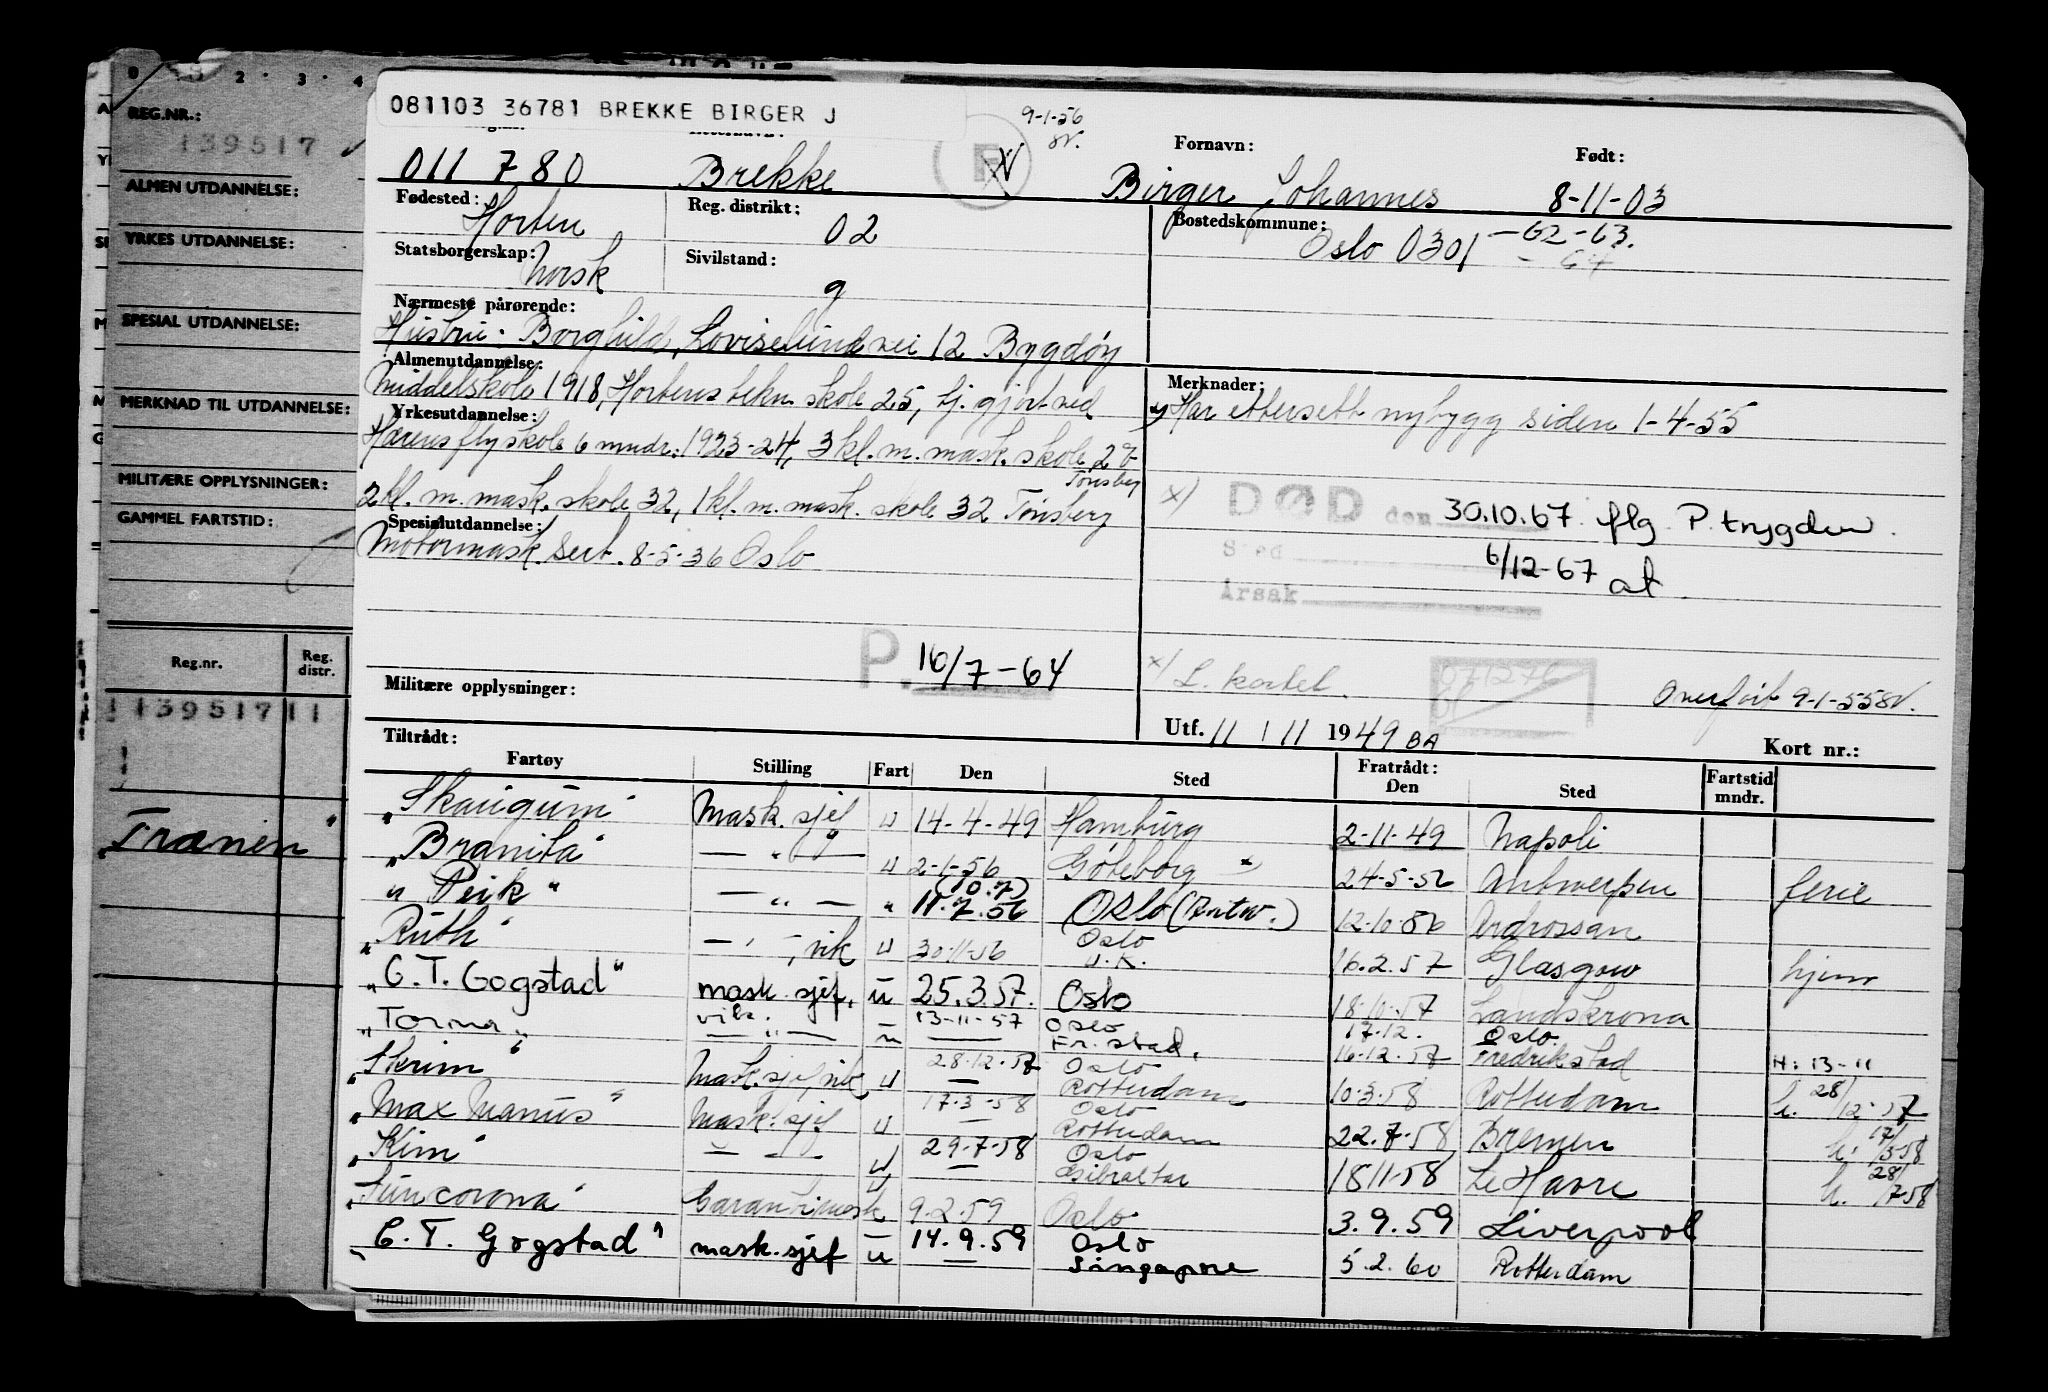 0 2 · 3 · 4
REG.NR.:
139517
ALMEN UTDANNELSE:
YRKES UTDANNELSE:
SPESIAL UTDANNELSE:
MERKNAD TIL UTDANNELSE:
MILITÆRE OPPLYSNINGER:
GAMMEL FARTSTID:
Reg.nr. Reg. distr.
139517 11
"Tranen"
081103 36781 BREKKE BIRGER J
9-1-56
Fornavn: Født:
011 780 Brekke Birger Johannes 8-11-03
Fødested: Horten Reg. distrikt: 02 Bostedskommune: Oslo 0301 -62-63.
- 64
Statsborgerskap: Norsk Sivilstand: g
Nærmeste pårørende:
Hustru: Borghild, Loviselundvei 12 Bygdøy
Almenutdannelse: Merknader:
Middelskole 1918, Hortens tekn. skole 25, tj. gjort ved
Har ettersett nybygg siden 1-4-55
Yrkesutdannelse:
Hærens flyskole 6 mndr. 1923-24, 3 kl. m. mask. skole
Tønsberg
2 kl. m. mask. skole 32, 1 kl. m. mask. skole 32 Tønsberg
x) DØD den 30.10.67. flg. P. trygden.
Spesialutdannelse: Sted
Motormask. sert. 8-5-36 Oslo
6/12-67 at.
Årsak
P. 16/7-64
x/ L. kortet.
071276
Militære opplysninger:
Overført 9-1-55
Utf. 11 / 11 1949 BA Kort nr.:
Tiltrådt: Fratrådt:
Fartøy Stilling Fart Den Sted Den Sted Fartstid mndr.
"Skaugum" Mask. sjef u 14-4-49 Hamburg 2-11-49 Napoli
"Branita" — " — u 2-1-56 Göteborg 24-5-56 Antwerpen ferie
"Peik" — " — " (10.7) 11.7.56 Oslo (Antw.) 12-10-56 Ardrossan
"Ruth" — " —, vik u 30-11-56 Oslo U.K. 16.2.57 Glasgow hjem
"C. T. Gogstad" mask. sjef, u 25.3.57. Oslo 18-10-57 Landskrona
"Torma" vik. — " — u 13-11-57 — Oslo Fr.stad. 17-12. 16-12-57 Oslo. Fredrikstad H: 13-11
"Skrim" Mask. sjef, vik u 28-12-57 — Oslo Rotterdam 10-3-58 Rotterdam h. 28/12-57
"Max Manus" Mask. sjef u 17-3-58 — Oslo Rotterdam 22.7.58 Bremen h. 17/3-58
"Kim" — " — u 29-7-58 — Oslo Gibraltar 18-11-58 Le Havre h. 28/7-58
"Suncorona" Garantimask u 9-2-59 Oslo 3.9.59 Liverpool
"C. T. Gogstad" mask. sjef u 14.9.59 — Oslo Singapore 5.2.60 Rotterdam